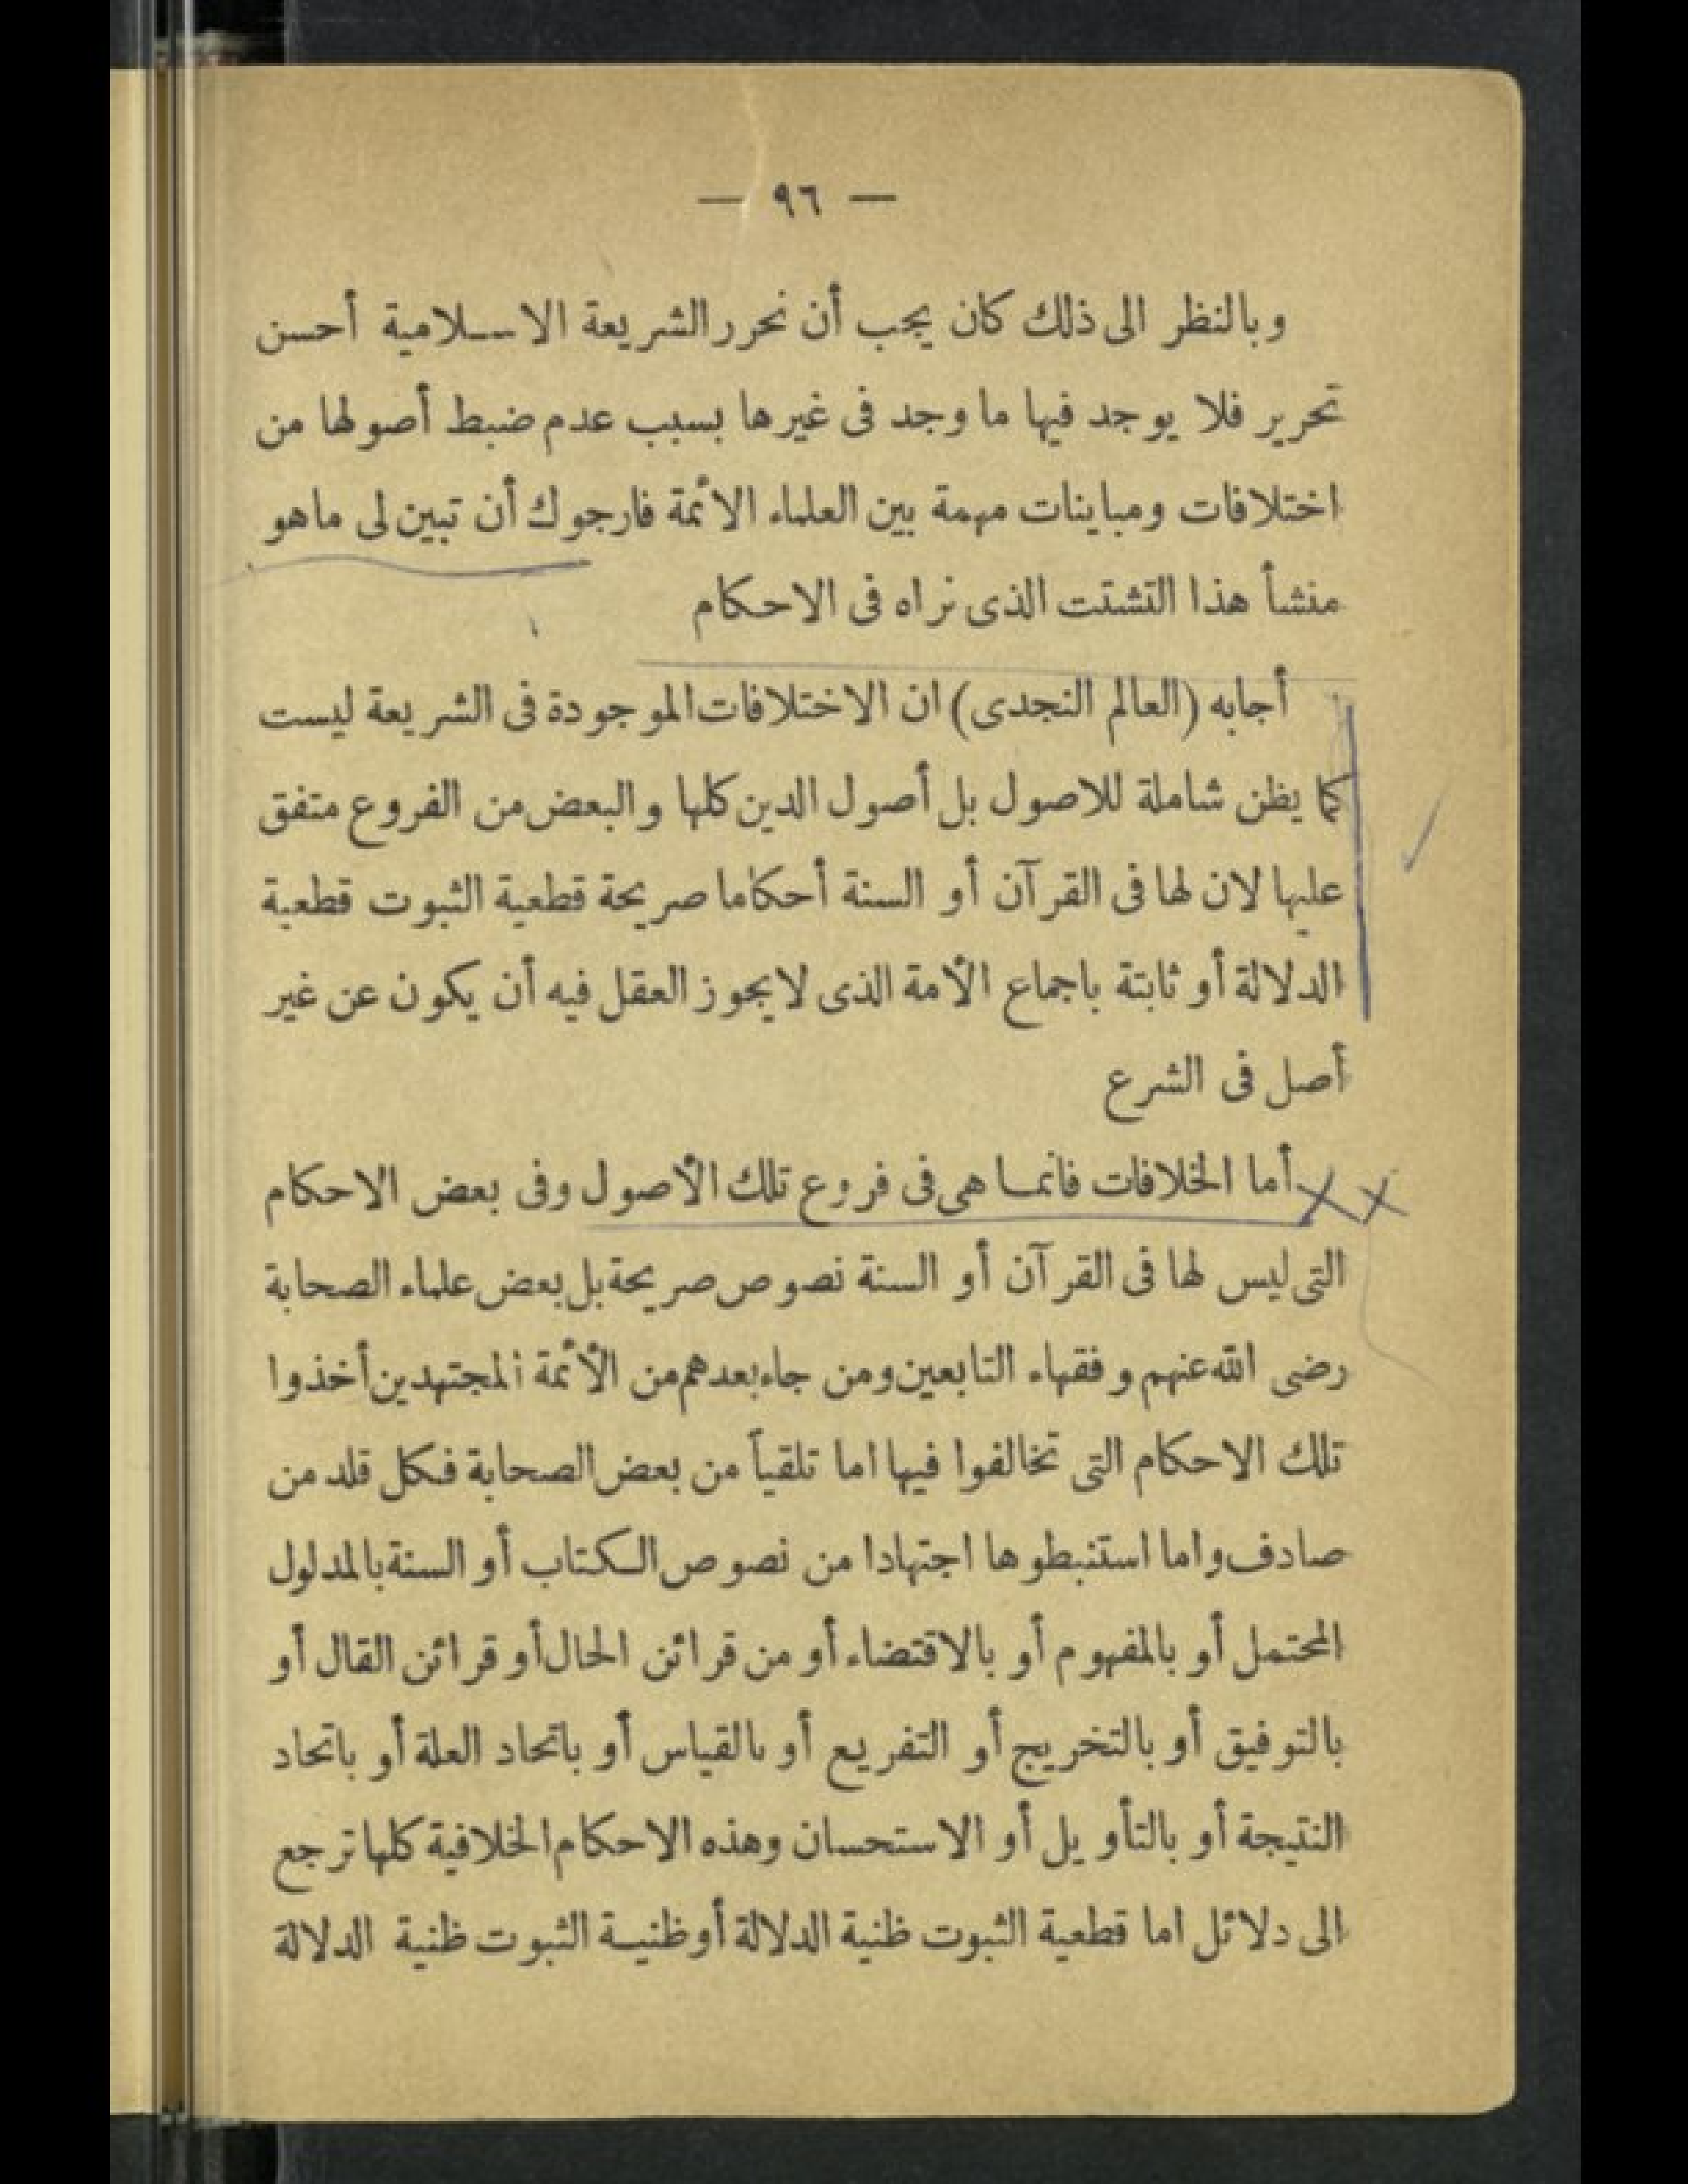 — ٩٦ —
وبالنظر الى ذلك كان يجب أن نحرر الشريعة الاسلامية أحسن
تحرير فلا يوجد فيها ما وجد فى غيرها بسبب عدم ضبط أصولها من
اختلافات ومباينات مهمة بين العلماء الأئمة فارجوك أن تبين لى ماهو
منشأ هذا التشتت الذى نراه فى الاحكام
أجابه (العالم النجدى) ان الاختلافات الموجودة فى الشريعة ليست
كما يظن شاملة للاصول بل أصول الدين كلها والبعض من الفروع متفق
عليها لان لها فى القرآن أو السنة أحكاما صريحة قطعية الثبوت قطعية
الدلالة أو ثابتة باجماع الأمة الذى لايجوز العقل فيه أن يكون عن غير
أصل فى الشرع
أما الخلافات فانما هى فى فروع تلك الأصول وفى بعض الاحكام
التى ليس لها فى القرآن أو السنة نصوص صريحة بل بعض علماء الصحابة
رضى الله عنهم وفقهاء التابعين ومن جاء بعدهم من الأئمة المجتهدين أخذوا
تلك الاحكام التى تخالفوا فيها اما تلقياً من بعض الصحابة فكل قلد من
صادف واما استنبطوها اجتهادا من نصوص الكتاب أو السنة بالمدلول
المحتمل أو بالمفهوم أو بالاقتضاء أو من قرائن الحال أو قرائن القال أو
بالتوفيق أو بالتخريج أو التفريع أو بالقياس أو باتحاد العلة أو باتحاد
النتيجة أو بالتأويل أو الاستحسان وهذه الاحكام الخلافية كلها ترجع
الى دلائل اما قطعية الثبوت ظنية الدلالة أو ظنية الثبوت ظنية الدلالة